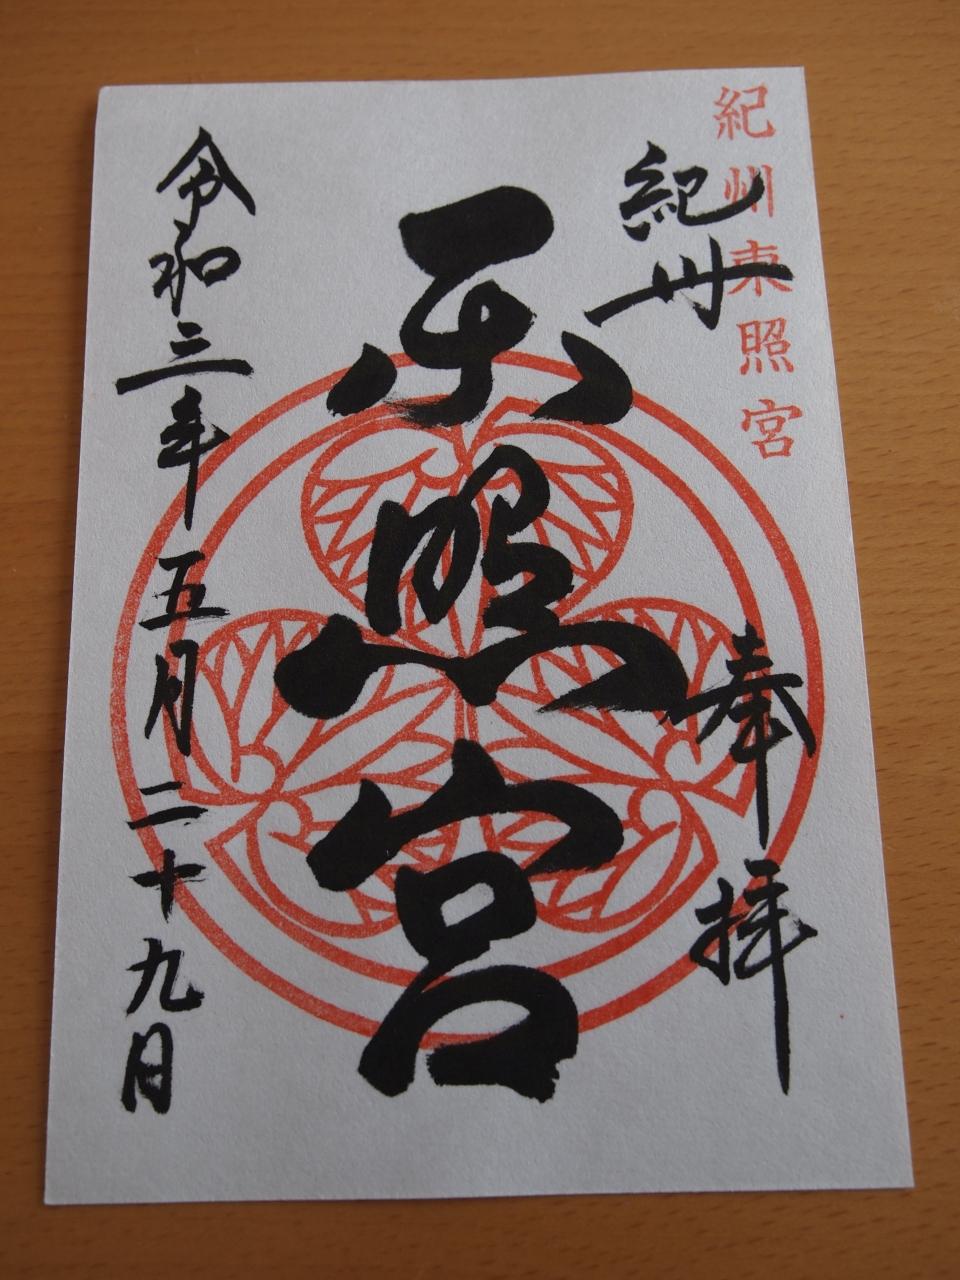 紀州東照宮
紀州
奉拝
東照宮
令和三年五月二十九日